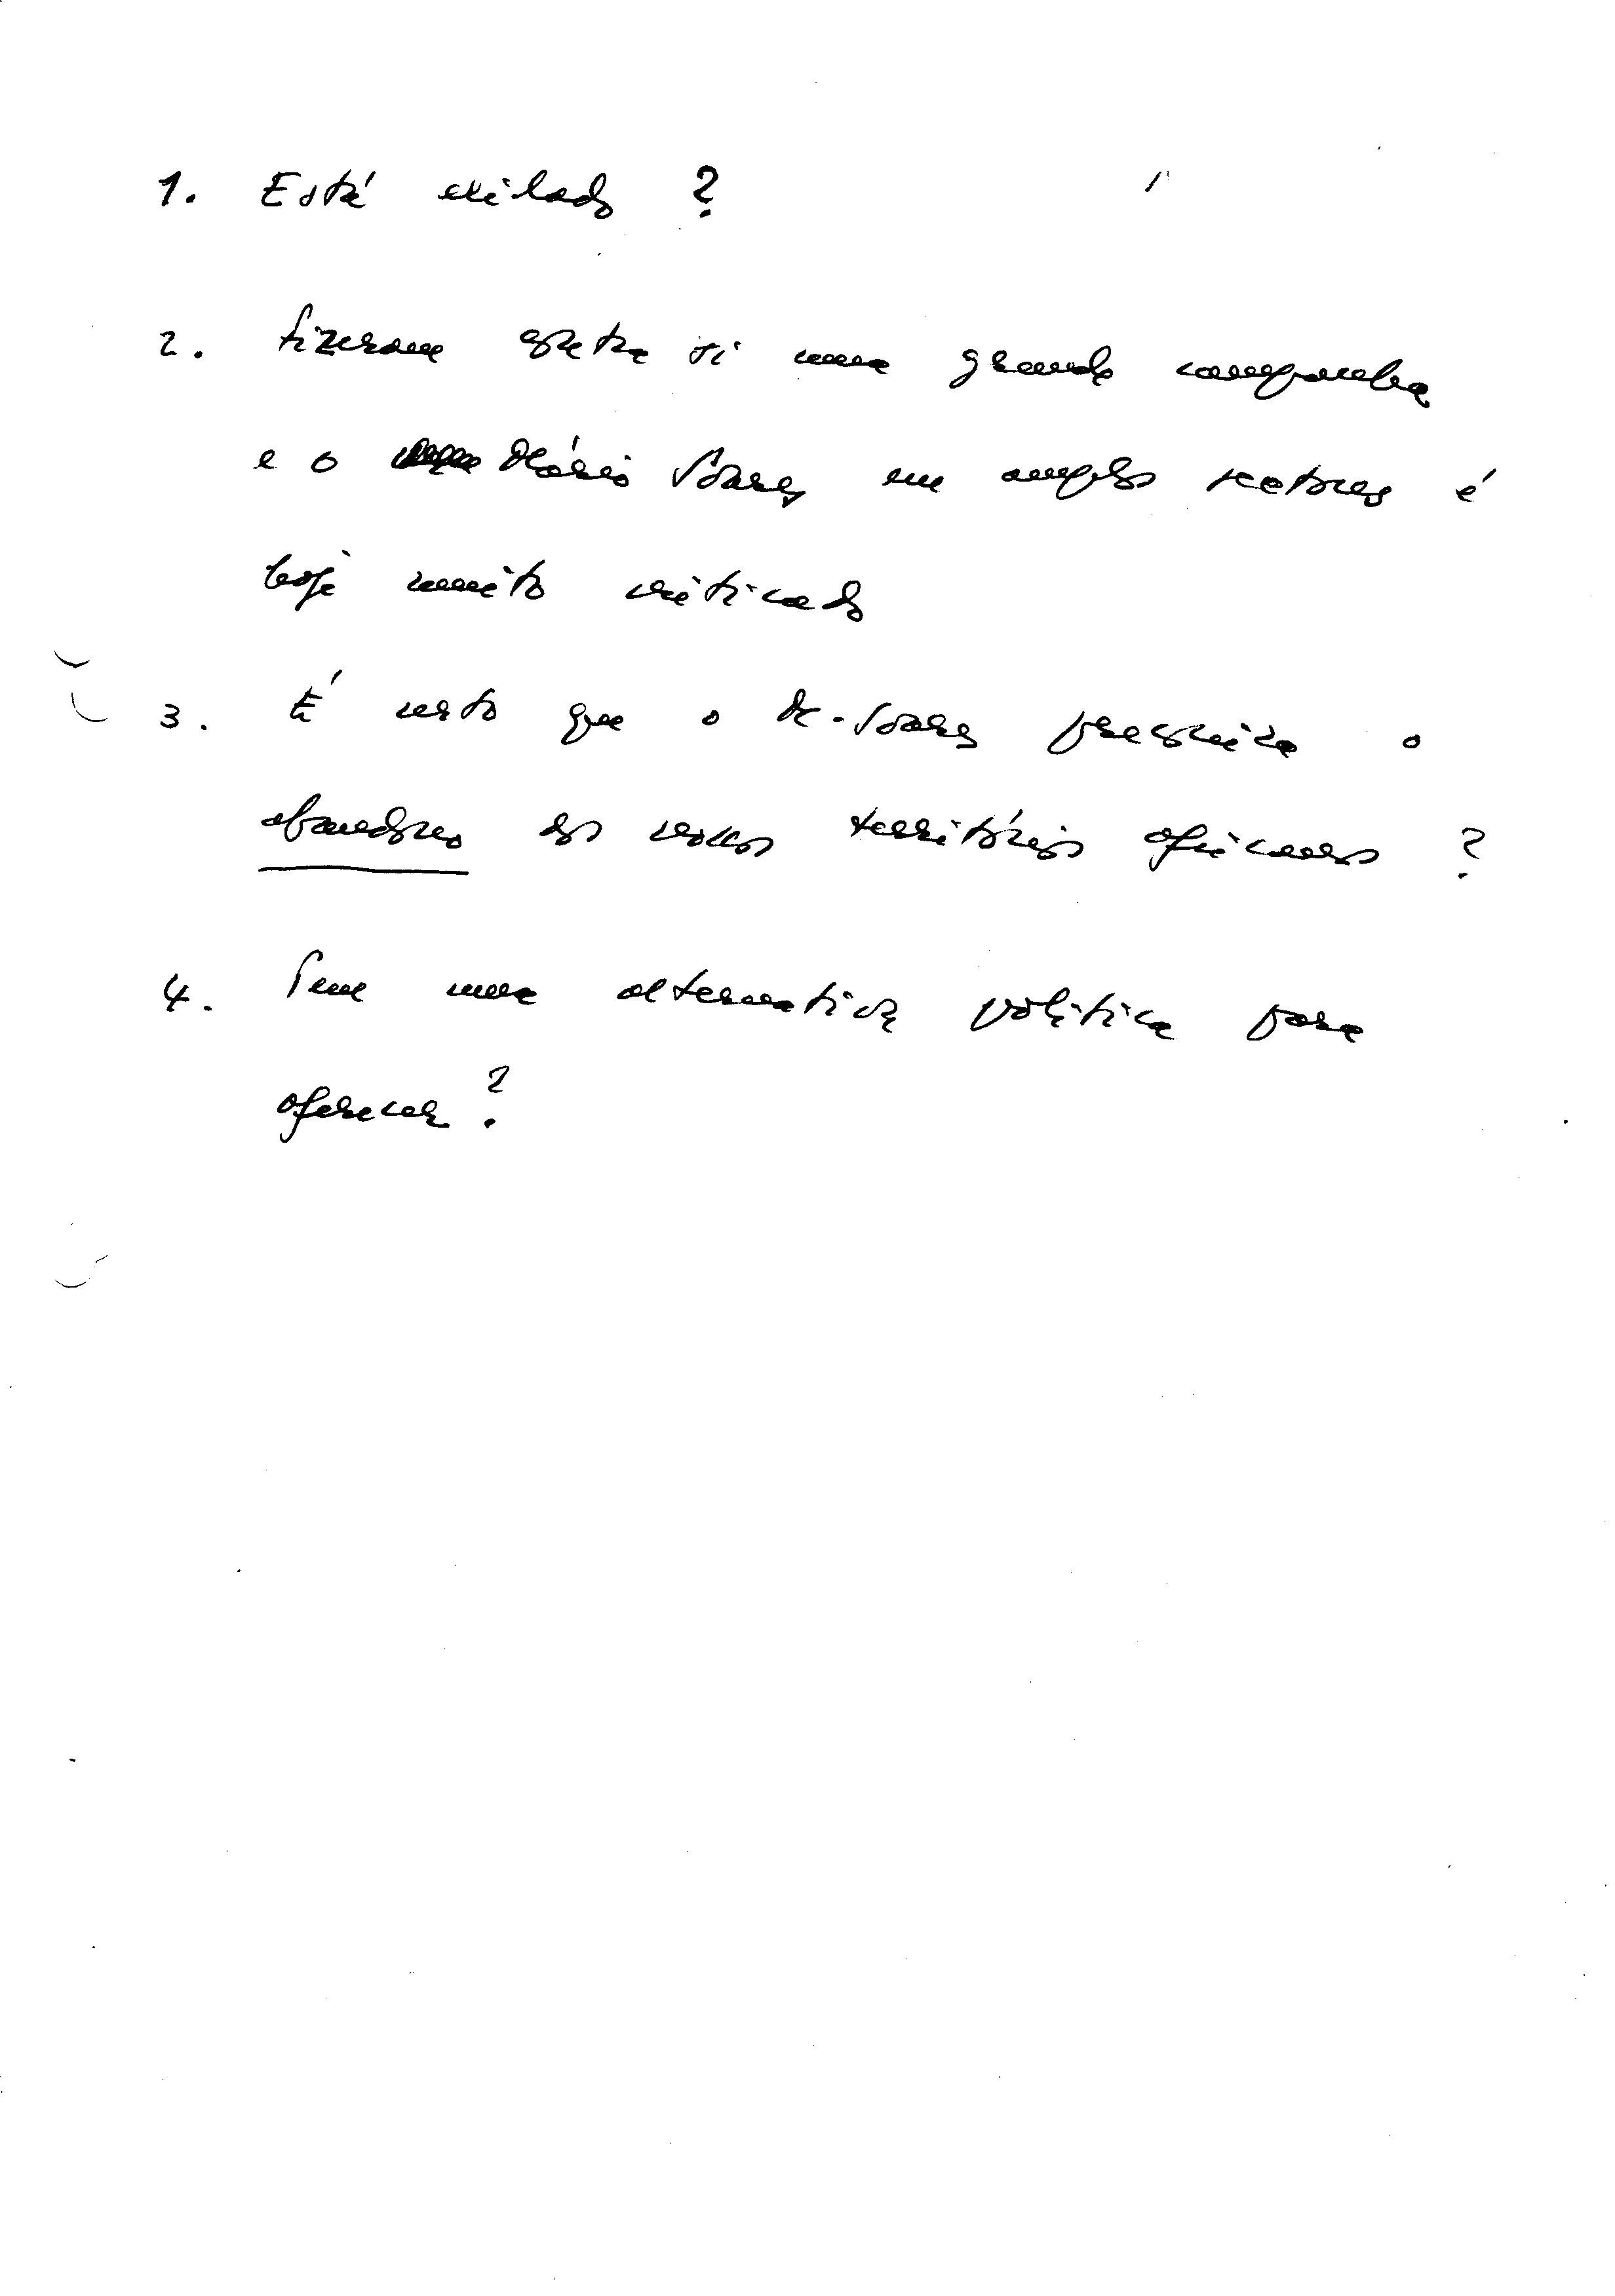 1. Está exilado ?
2. Fizeram contra si uma grande campanha
e o Mário Soares em amplos sectores é
hoje muito criticado
3. É certo que o Dr. Soares preconiza o
abandono dos vossos territórios africanos ?
4. Tem uma alternativa política para
oferecer ?